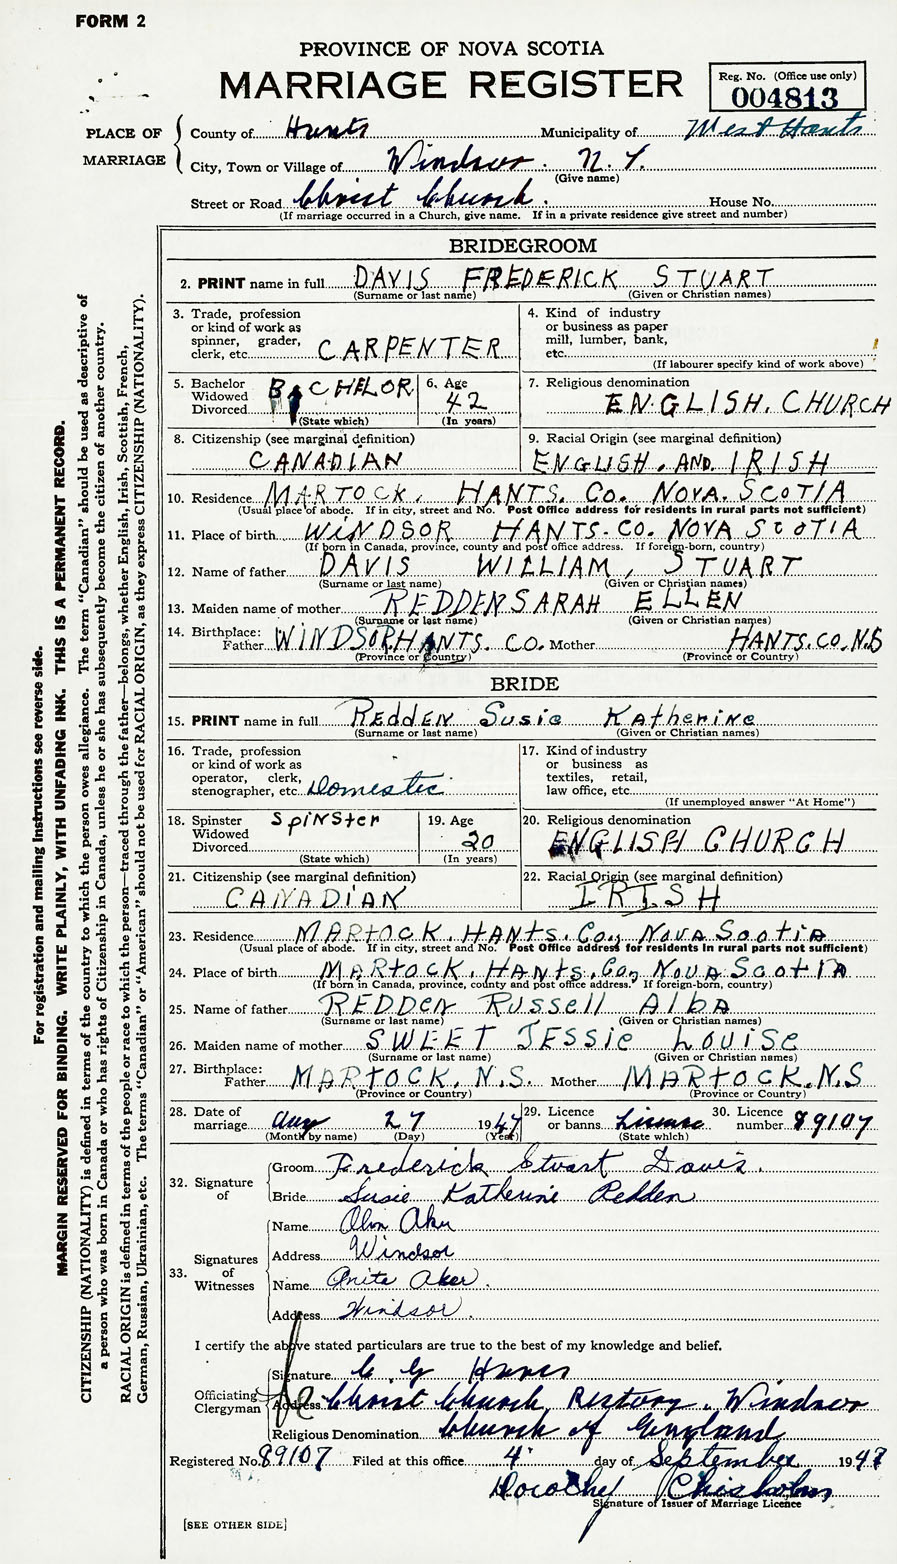 FORM 2
PROVINCE OF NOVA SCOTIA
MARRIAGE REGISTER
Reg. No. (Office use only)
004813
PLACE OF MARRIAGE
County of Hants Municipality of West Hants
City, Town or Village of Windsor. N.S.
(Give name)
Street or Road Christ Church. House No.
(If marriage occurred in a Church, give name. If in a private residence give street and number)
BRIDEGROOM
2. PRINT name in full DAVIS FREDERICK STUART
(Surname or last name) (Given or Christian names)
3. Trade, profession
or kind of work as
spinner, grader,
clerk, etc. CARPENTER
4. Kind of industry
or business as paper
mill, lumber, bank,
etc.
(If labourer specify kind of work above)
5. Bachelor
Widowed
Divorced
BACHELOR
(State which)
6. Age
42
(In years)
7. Religious denomination
ENGLISH. CHURCH
8. Citizenship (see marginal definition)
CANADIAN
9. Racial Origin (see marginal definition)
ENGLISH. AND. IRISH
10. Residence MARTOCK. HANTS. Co. NOVA. SCOTIA
(Usual place of abode. If in city, street and No. Post Office address for residents in rural parts not sufficient)
11. Place of birth WINDSOR HANTS. CO. NOVA SCOTIA
(If born in Canada, province, county and post office address. If foreign-born, country)
12. Name of father DAVIS WILLIAM, STUART
(Surname or last name) (Given or Christian names)
13. Maiden name of mother REDDEN SARAH ELLEN
(Surname or last name) (Given or Christian names)
14. Birthplace:
Father WINDSOR HANTS. CO. Mother HANTS. CO. N.S
(Province or Country) (Province or Country)
BRIDE
15. PRINT name in full REDDEN Susie Katherine
(Surname or last name) (Given or Christian names)
16. Trade, profession
or kind of work as
operator, clerk,
stenographer, etc. Domestic
17. Kind of industry
or business as
textiles, retail,
law office, etc.
(If unemployed answer "At Home")
18. Spinster
Widowed
Divorced
Spinster
(State which)
19. Age
20
(In years)
20. Religious denomination
ENGLISH CHURCH
21. Citizenship (see marginal definition)
CANADIAN
22. Racial Origin (see marginal definition)
IRISH
23. Residence MARTOCK. HANTS. Co, NOVA SCOTIA
(Usual place of abode. If in city, street and No. Post Office address for residents in rural parts not sufficient)
24. Place of birth MARTOCK. HANTS. Co, NOVA SCOTIA
(If born in Canada, province, county and post office address. If foreign-born, country)
25. Name of father REDDEN RUSSell AlbA
(Surname or last name) (Given or Christian names)
26. Maiden name of mother SWEET JESSie LOUiSe
(Surname or last name) (Given or Christian names)
27. Birthplace:
Father MARTOCK. N.S. Mother MARTOCK. N.S
(Province or Country) (Province or Country)
28. Date of marriage Aug 27 1947
(Month by name) (Day) (Year)
29. Licence or banns License
(State which)
30. Licence number 89107
32. Signature of
Groom Frederick Stuart Davis.
Bride Susie Katherine Redden
33. Signatures of Witnesses
Name Olin Aker
Address Windsor
Name Anita Aker.
Address Windsor.
I certify the above stated particulars are true to the best of my knowledge and belief.
Officiating Clergyman
Signature C. G.
Address Christ Church Rectory. Windsor
Religious Denomination Church of England
Registered No. 89107 Filed at this office 4 day of September 1947
Dorothy Chisholm
Signature of Issuer of Marriage Licence
[SEE OTHER SIDE]
For registration and mailing instructions see reverse side.
MARGIN RESERVED FOR BINDING. WRITE PLAINLY, WITH UNFADING INK. THIS IS A PERMANENT RECORD.
CITIZENSHIP (NATIONALITY) is defined in terms of the country to which the person owes allegiance. The term "Canadian" should be used as descriptive of
a person who was born in Canada or who has rights of Citizenship in Canada, unless he or she has subsequently become the citizen of another country.
RACIAL ORIGIN is defined in terms of the people or race to which the person—traced through the father—belongs, whether English, Irish, Scottish, French,
German, Russian, Ukrainian, etc. The terms "Canadian" or "American" should not be used for RACIAL ORIGIN, as they express CITIZENSHIP (NATIONALITY).